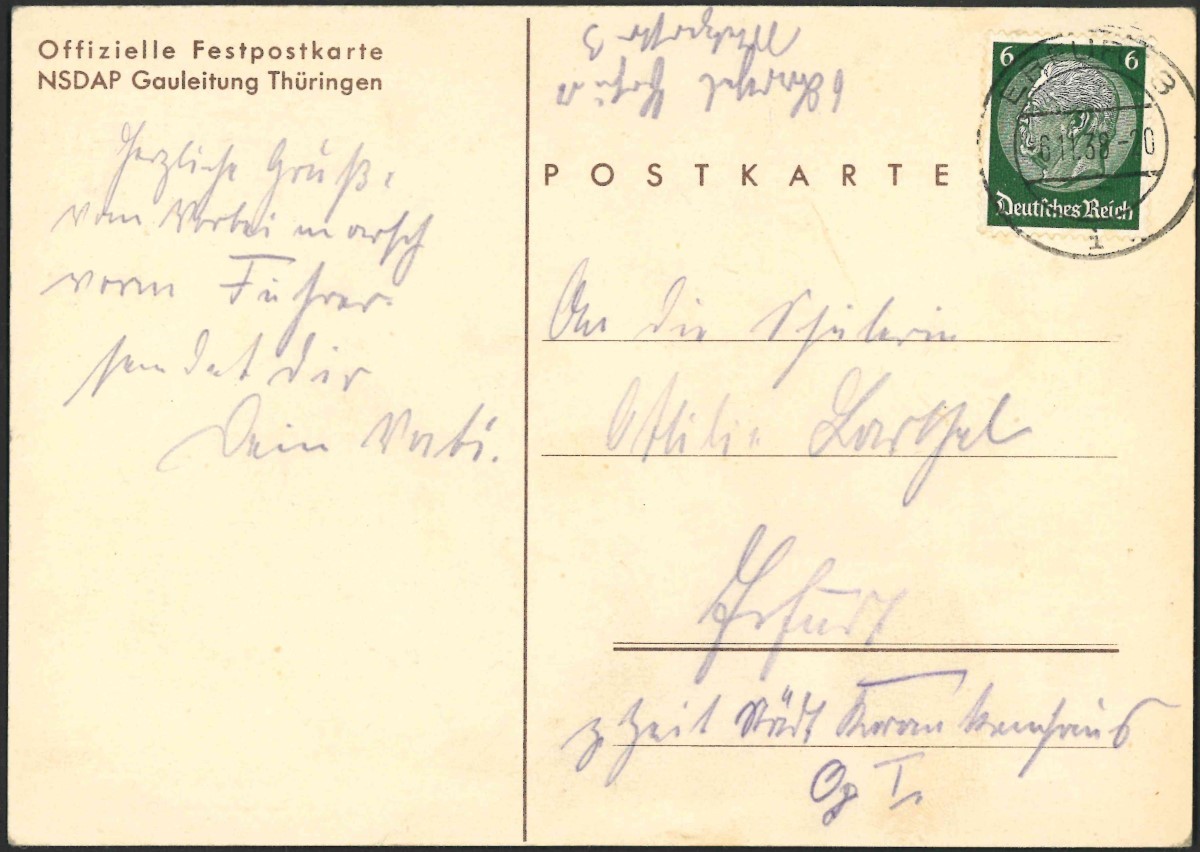 Offizielle Festpostkarte
NSDAP Gauleitung Thüringen
Herzliche Grüße
vom Vorbeimarsch
vorm Führer
sendet dir
Dein Vati.
POSTKARTE
6 6
Deutsches Reich
6.11.38-20
1
An die Schülerin
Ottilie Barthel
Erfurt
z Zeit Städt Krankenhaus
Op I
Barthel Erfurt
3